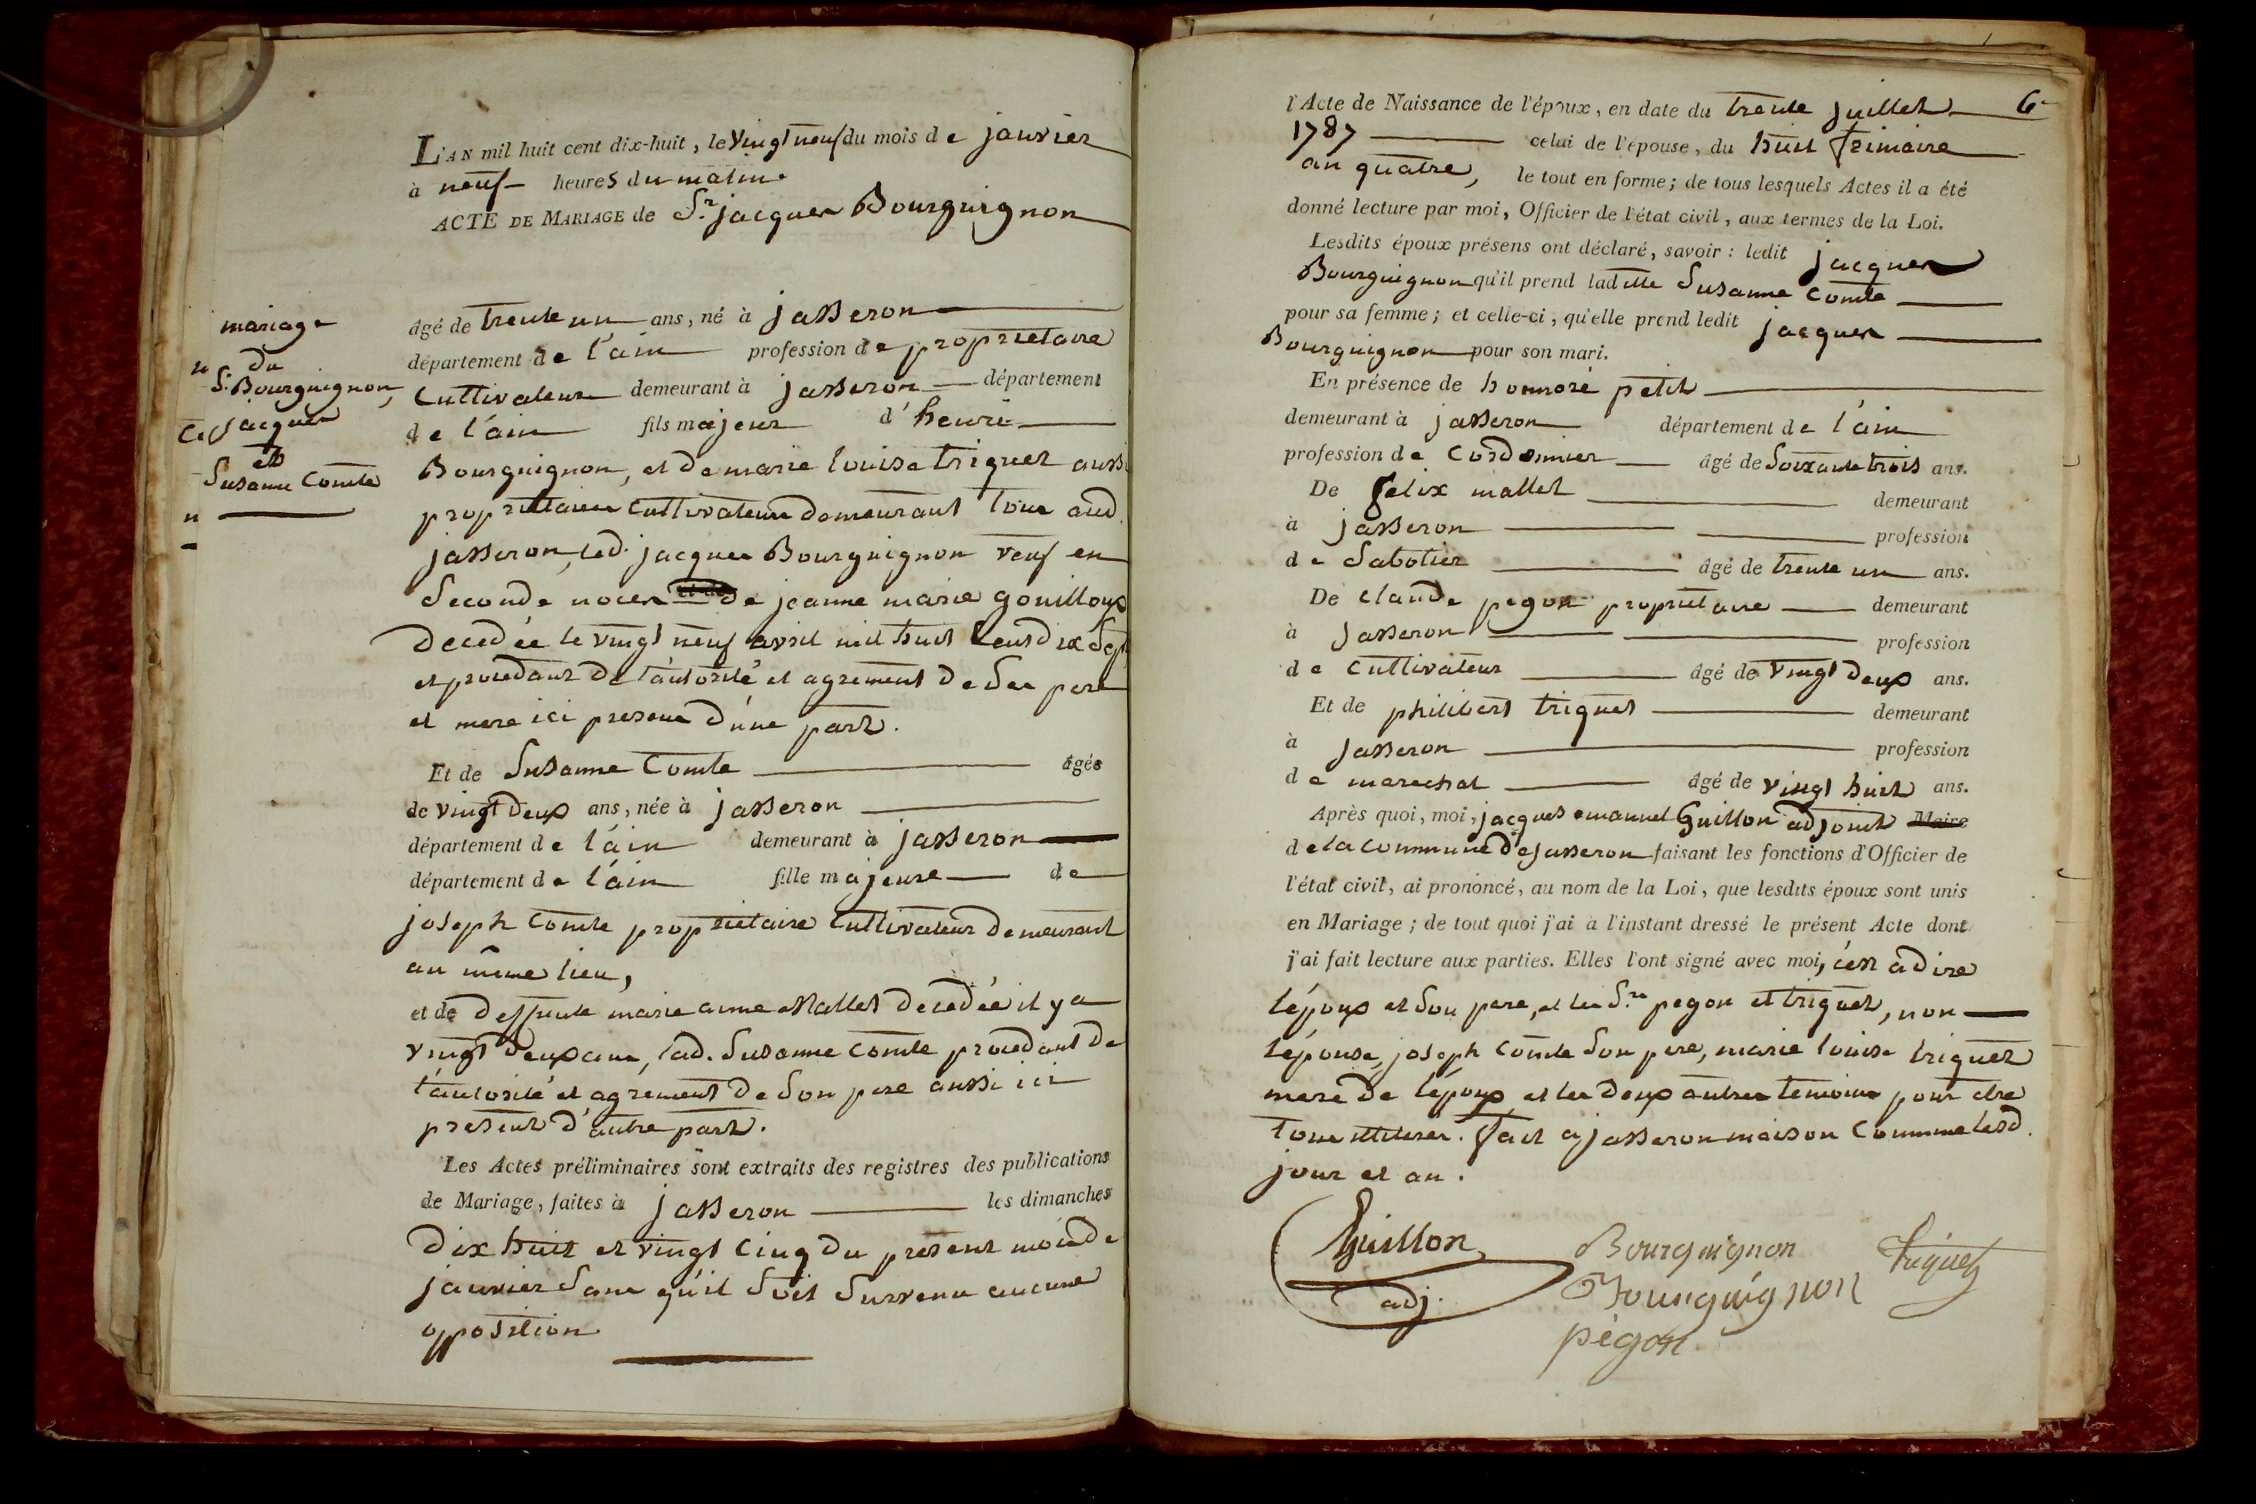 L'AN mil huit cent dix-huit, le vingt neuf du mois de janvier
à neuf heures du matin.
ACTE DE MARIAGE de Sr. jacques Bourguignon
mariage
du
Sr. Bourguignon,
jacques
et
Susanne Comte
âgé de trente un ans, né à jasseron
département de l'ain profession de proprietaire
Cultivateur demeurant à jasseron département
de l'ain fils majeur d'henri
Bourguignon, et de marie louise triquet aussi
proprietaires Cultivateurs demeurant tous aud.
jasseron, led. jacques Bourguignon veuf en
Seconde noces de jeanne marie gouilloux
decedée le vingt neuf avril mil huit Cent dix Sept
et procedant de l'autorité et agrement de Ses pere
et mere ici presens d'une part.
Et de Susanne Comte âgée
de vingt deux ans, née à jasseron
département de l'ain demeurant à jasseron
département de l'ain fille majeure de
joseph Comte proprietaire Cultivateur demeurant
au même lieu,
et de deffunte marie anne Mallet decedée il y a
vingt deux ans, lad. Susanne Comte procedant de
l'autorité et agrement de Son pere aussi ici
present d'autre part.
Les Actes préliminaires sont extraits des registres des publications
de Mariage, faites à jasseron les dimanches
dix huit et vingt Cinq du present mois de
janvier Sans qu'il Soit Survenu aucune
opposition
6
l'Acte de Naissance de l'époux, en date du trente juillet
1787 celui de l'épouse, du huit frimaire
an quatre, le tout en forme; de tous lesquels Actes il a été
donné lecture par moi, Officier de l'état civil, aux termes de la Loi.
Lesdits époux présens ont déclaré, savoir: ledit jacques
Bourguignon qu'il prend laditte Susanne Comte
pour sa femme; et celle-ci, qu'elle prend ledit jacques
Bourguignon pour son mari.
En présence de honnoré petit
demeurant à jasseron département de l'ain
profession de Cordonnier âgé de Soixante trois ans.
De felix mallet demeurant
à jasseron profession
de Sabotier âgé de trente un ans.
De claude pegon proprietaire demeurant
à jasseron profession
de Cultivateur âgé de vingt deux ans.
Et de philibert triquet demeurant
à jasseron profession
de marechal âgé de vingt huit ans.
Après quoi, moi, jacques emanuel Guillon adjoint Maire
de la Commune de jasseron faisant les fonctions d'Officier de
l'état civil, ai prononcé, au nom de la Loi, que lesdits époux sont unis
en Mariage; de tout quoi j'ai à l'instant dressé le présent Acte dont
j'ai fait lecture aux parties. Elles l'ont signé avec moi, c'est à dire
l'époux et Son pere, et les Srs. pegon et triquet, non
l'épouse, joseph Comte Son pere, marie louise triquet
mere de l'époux et les deux autres temoins pour etre
tous illiteres. fait à jasseron maison Commune lesd.
jour et an.
Guillon
adj.
Bourguignon
Bourguignon
pégon
Triquet